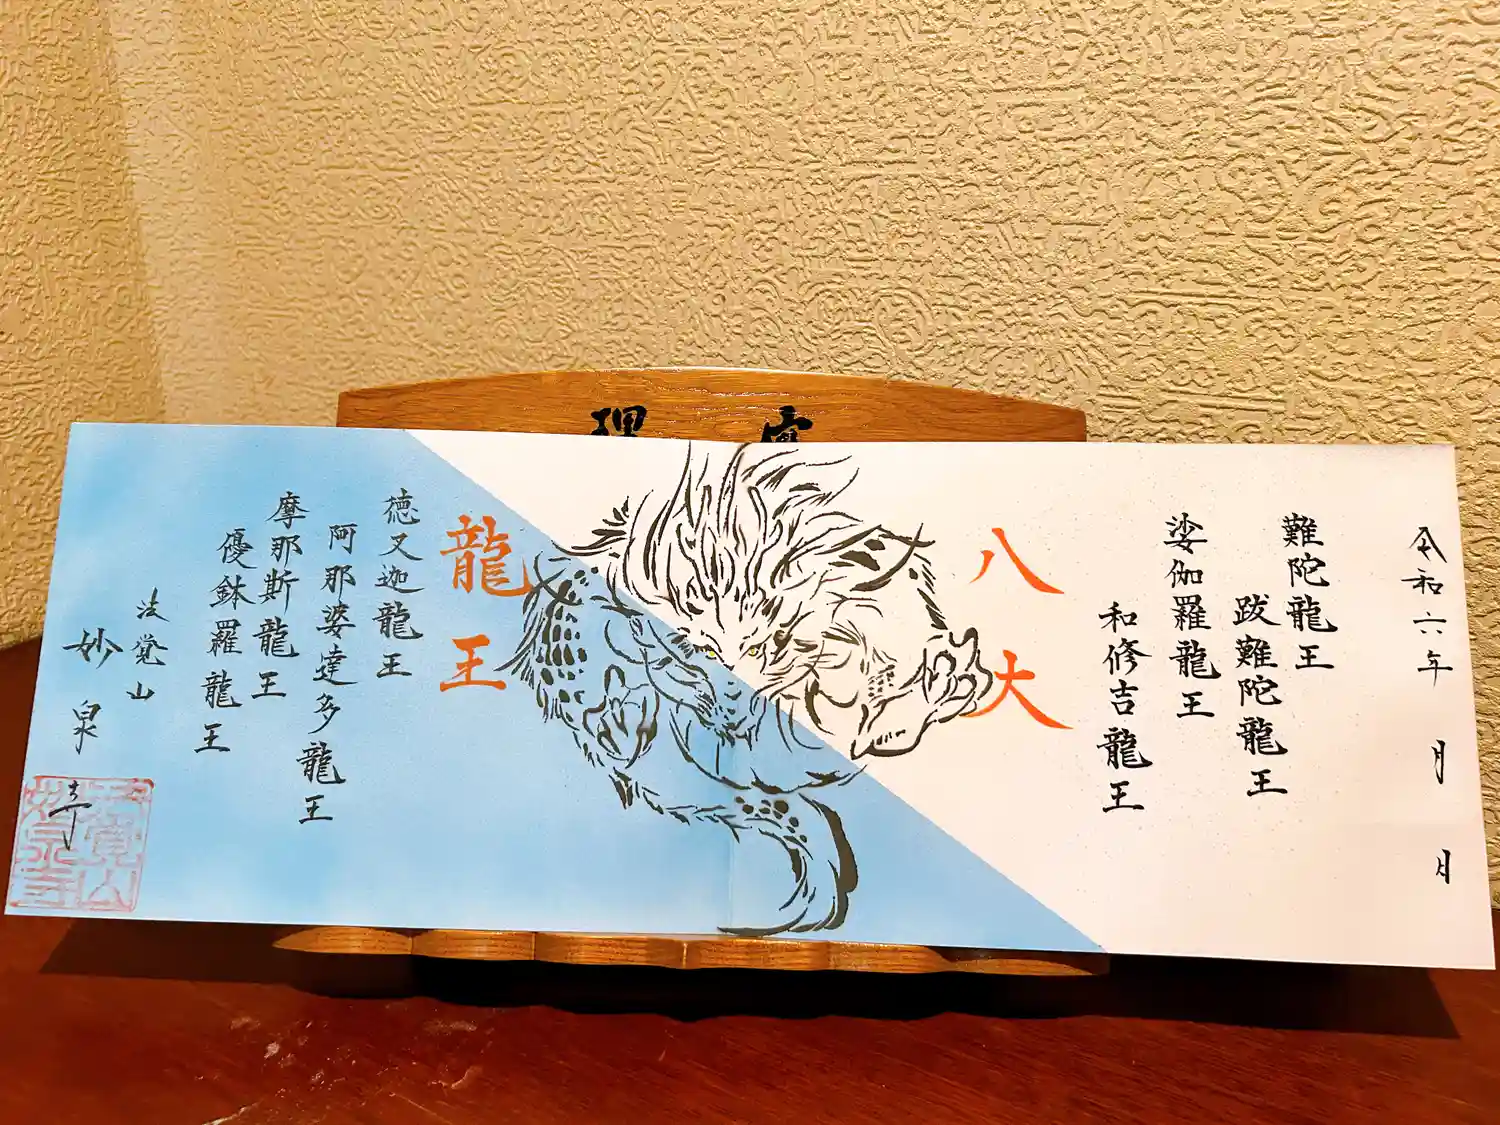 令和六年 月 日
難陀龍王
跋難陀龍王
娑伽羅龍王
和修吉龍王
八大
龍王
徳叉迦龍王
阿那婆達多龍王
摩那斯龍王
優鉢羅龍王
法覚山
妙泉寺